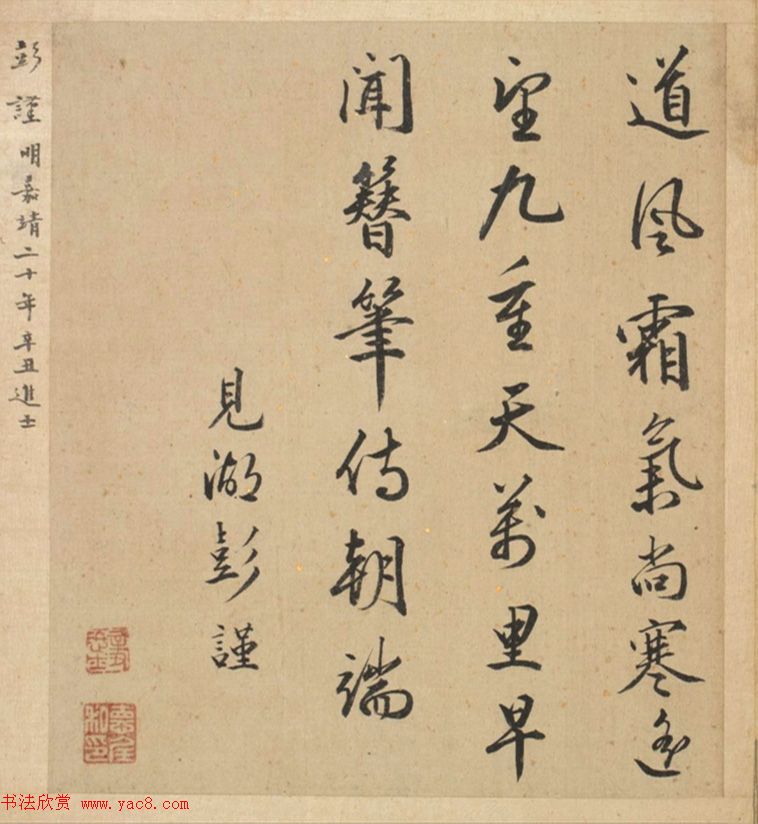 道風霜氣尚寒遙
望九重天萬里早
聞簪筆侍朝端
見湖彭謹
彭謹 明嘉靖二十年辛丑進士
书法欣赏 www.yac8.com